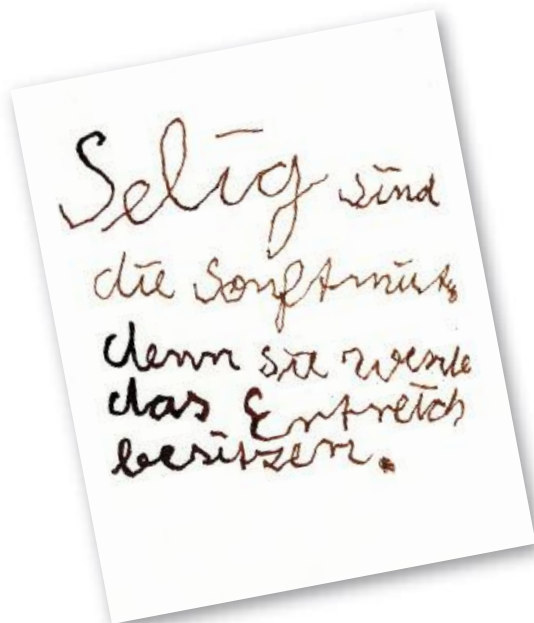 Selig sind
die Sanftmüt,
denn sie werde
das Erdreich
besitzen.